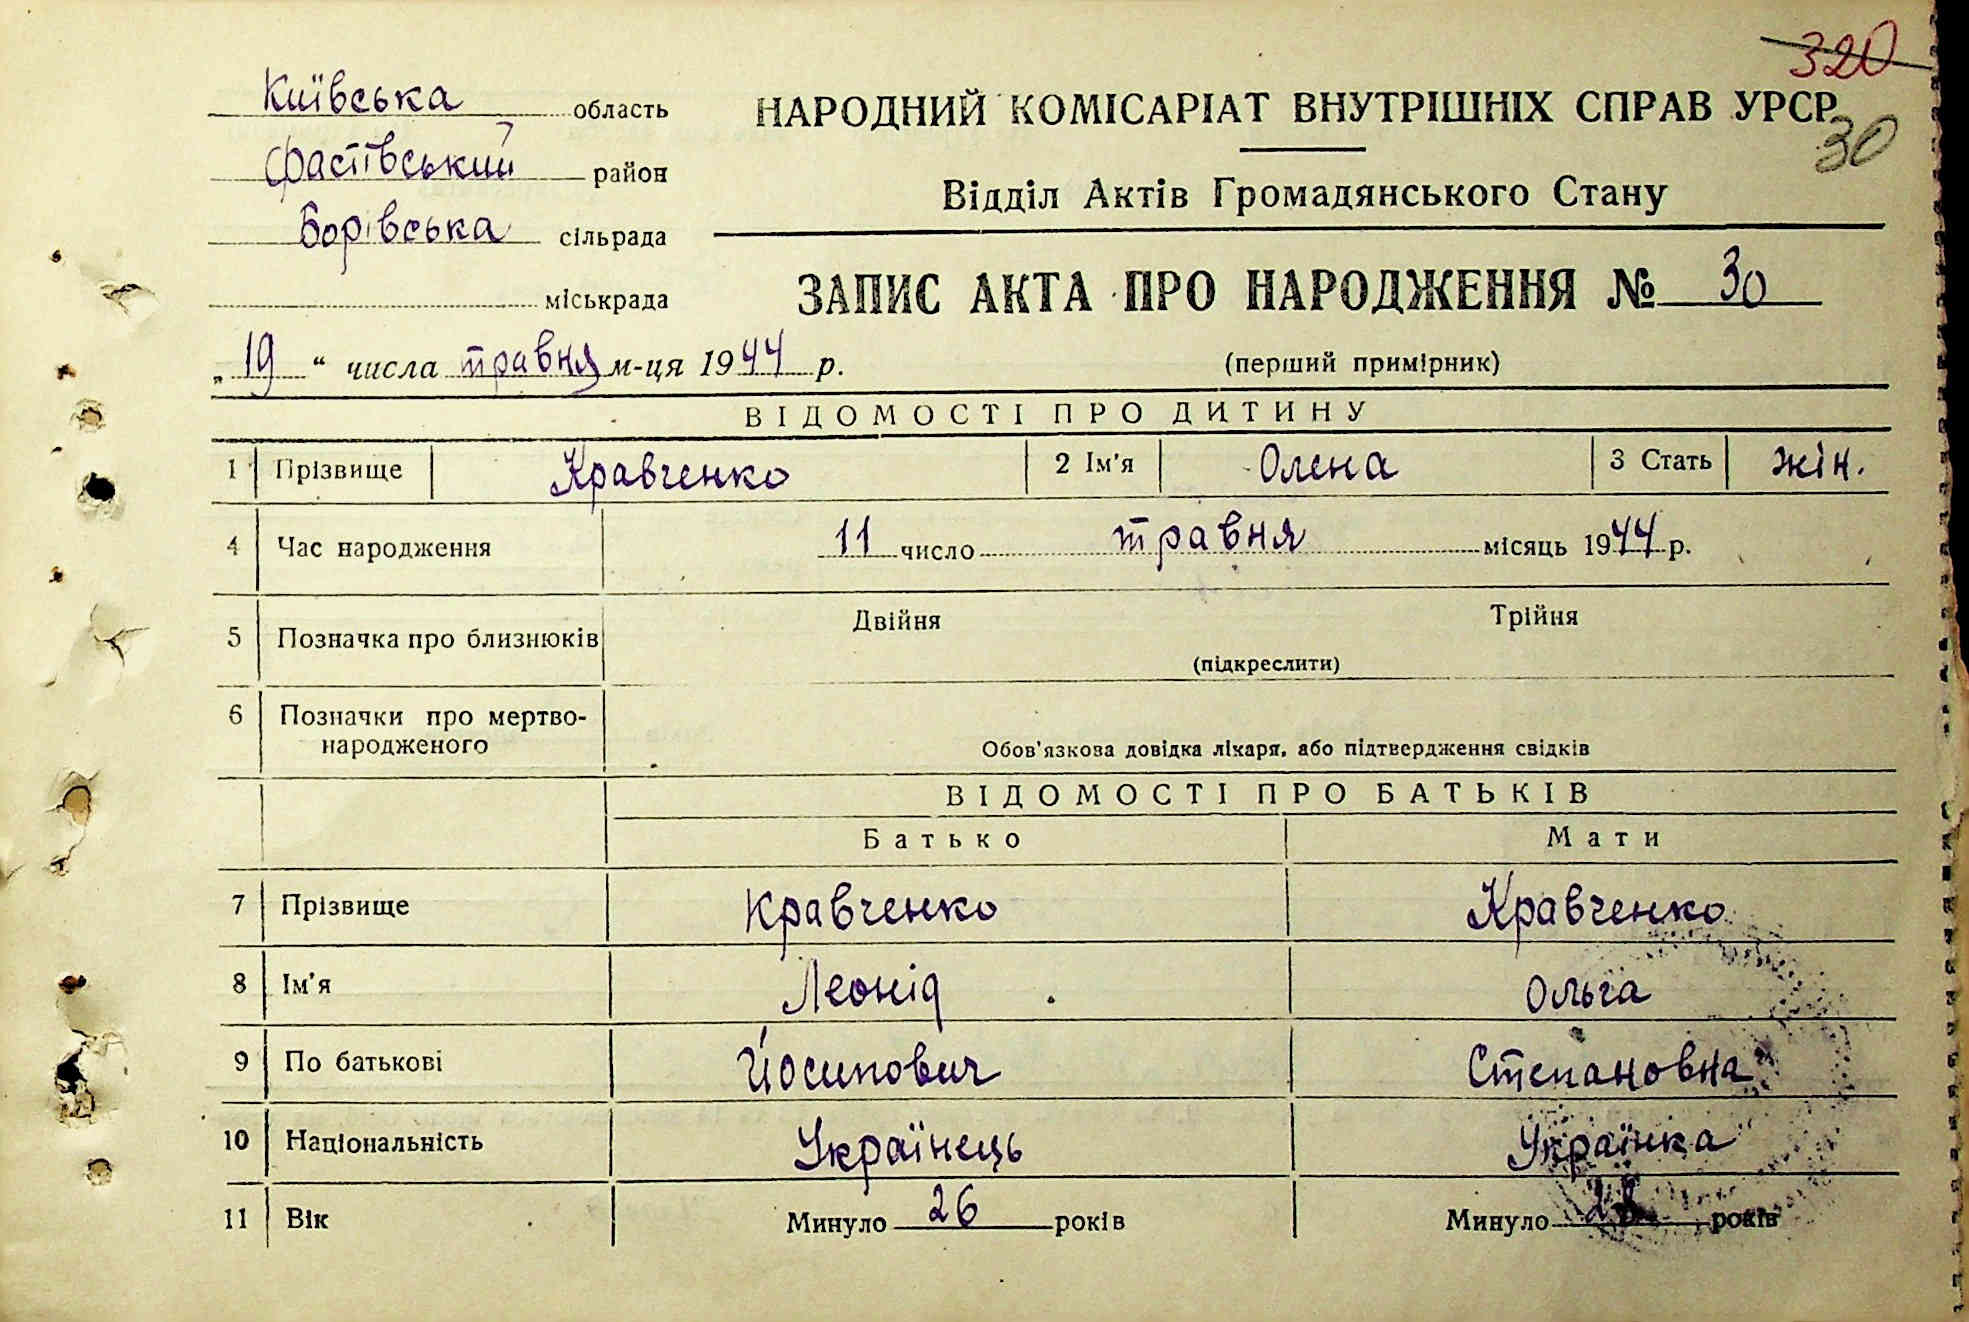 320
Київська область
Фастівський район
Борівська сільрада
міськрада
НАРОДНИЙ КОМІСАРІАТ ВНУТРІШНІХ СПРАВ УРСР
30
Відділ Актів Громадянського Стану
ЗАПИС АКТА ПРО НАРОДЖЕННЯ № 30
„19“ числа травня м-ця 1944 р.
(перший примірник)
ВІДОМОСТІ ПРО ДИТИНУ
1 Прізвище Кравченко 2 Ім'я Олена 3 Стать жін.
4 Час народження 11 число травня місяць 1944 р.
5 Позначка про близнюків Двійня Трійня
(підкреслити)
6 Позначки про мертво-
народженого
Обов'язкова довідка лікаря, або підтвердження свідків
ВІДОМОСТІ ПРО БАТЬКІВ
Батько Мати
7 Прізвище Кравченко Кравченко
8 Ім'я Леонід Ольга
9 По батькові Йосипович Степановна
10 Національність Українець Українка
11 Вік Минуло 26 років Минуло років